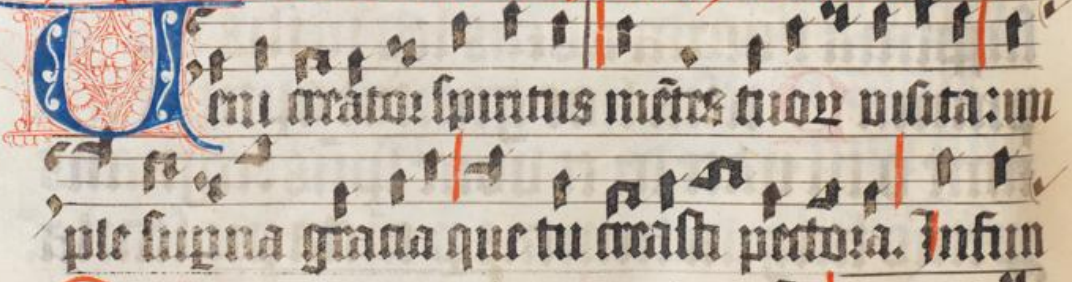 Ueni creator spiritus mẽtes tuoꝝ uisita: im
ple supna gratia que tu creasti pectora. Infun